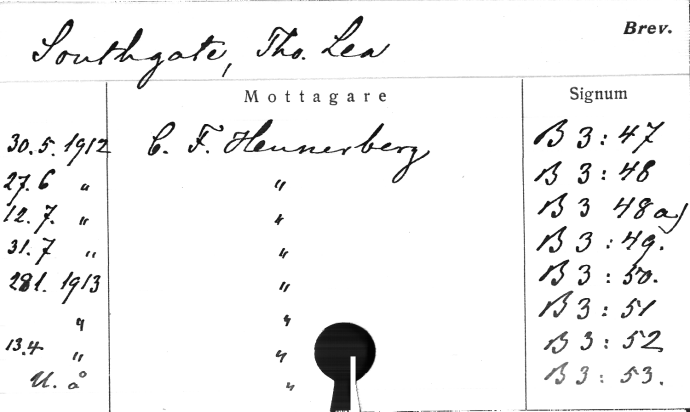 Brev.
Southgate, Tho. Lea
Mottagare Signum
30.5. 1912 C. F. Hennerberg B 3:47
27.6 " " B 3:48
12.7. " " B 3 48a)
31.7 " " B 3:49.
281. 1913 " B 3:50.
" " B 3:51
13.4 " " B 3:52
U. å " B 3:53.